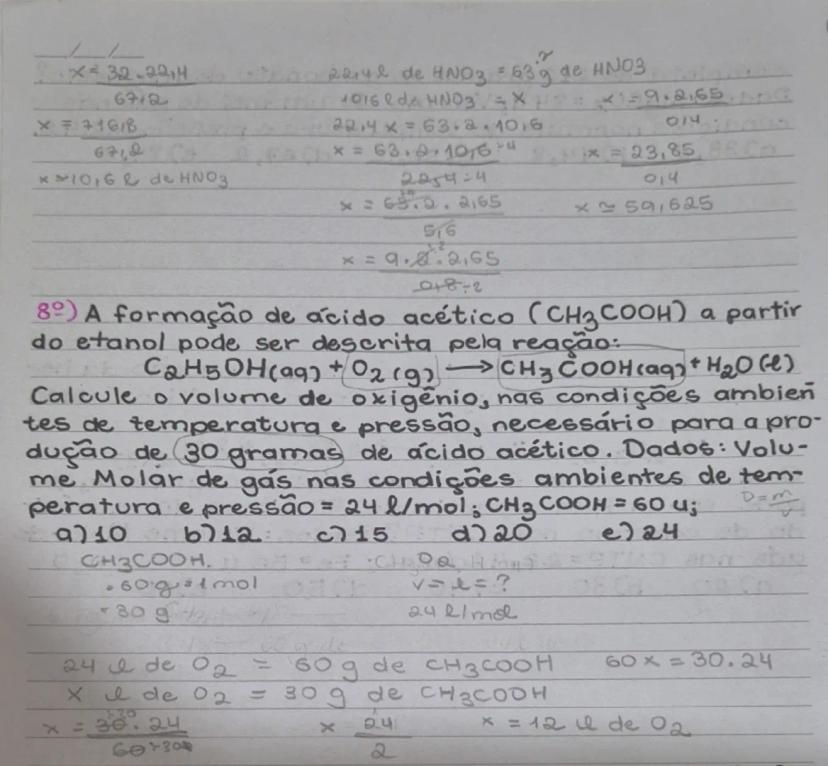 __/__/__
x = 32.22,4
67,2
x = 716,8
67,2
x ≈ 10,6 l de HNO3
22,4 l de HNO3 = 63.2 g de HNO3
10,6 l de HNO3 = x
22,4 x = 63.2.10,6
x = 63.2.10,6 ÷4
22,4 ÷4
x = 63.2.2,65
5,6
x = 9.2.2,65
0,8 ÷2
x = 9.2,65
0,4
x = 23,85
0,4
x ≃ 59,625
8º) A formação de ácido acético (CH3COOH) a partir
do etanol pode ser descrita pela reação:
C2H5OH(aq) + O2(g) → CH3COOH(aq) + H2O(l)
Calcule o volume de oxigênio, nas condições ambien
tes de temperatura e pressão, necessário para a pro-
dução de 30 gramas de ácido acético. Dados: Volu-
me Molar de gás nas condições ambientes de tem-
peratura e pressão = 24 l/mol; CH3COOH = 60 u;
D = m/v
a) 10 b) 12 c) 15 d) 20 e) 24
CH3COOH. O2
. 60 g = 1 mol v = l = ?
- 30 g 24 l/mol
24 l de O2 = 60 g de CH3COOH 60x = 30.24
x l de O2 = 30 g de CH3COOH
x = 30÷30 . 24 x 24 x = 12 l de O2
60÷30 2